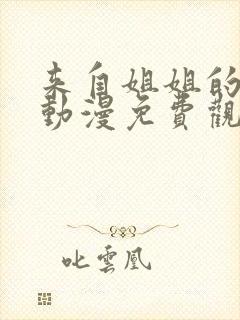 来自姐姐的
動漫免費觀
叱雲凰